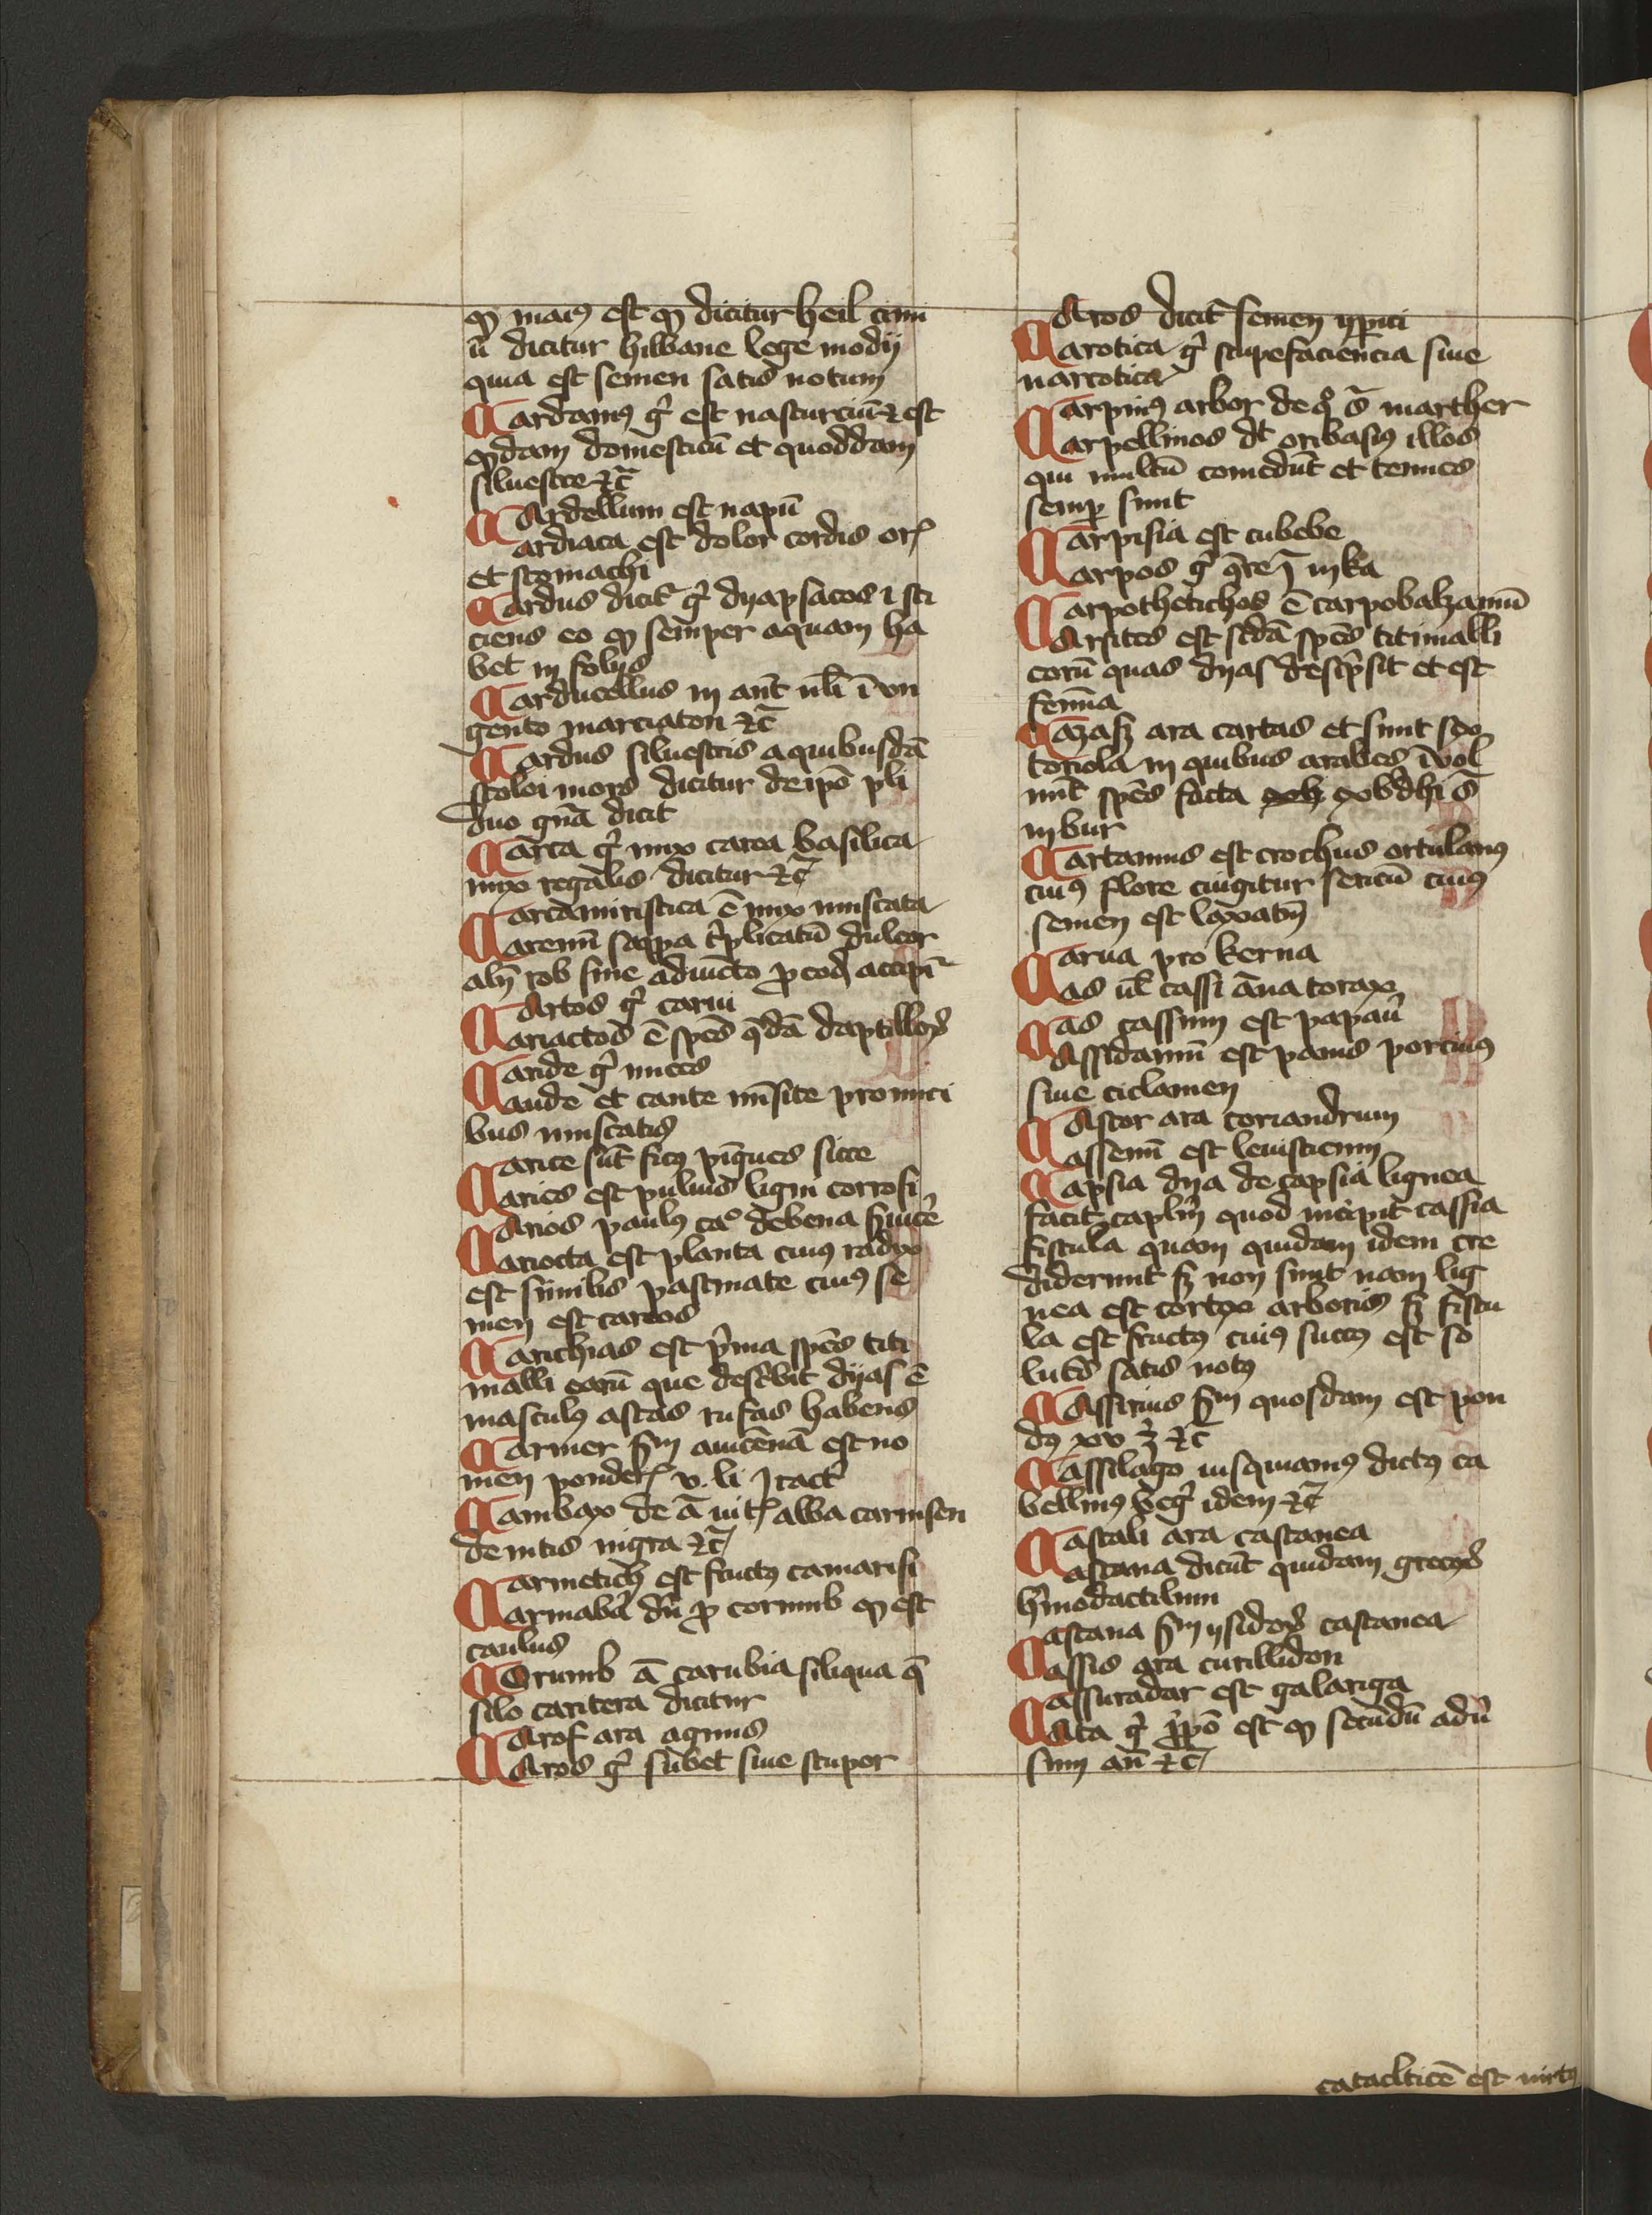 ꝙ maiꝰ est ꝙ dicitur heil cum
ū dicitur hilbane lege modij
quia est semen satis notum
Cardamꝰ gͥ est nasturciū ⁊ est
ꝙdam domesticū et quoddam
siluestre ⁊c̄
Cardellum est napū
Cardiaca est dolor cordis orͥ
et stomachi
Cardus dicit᷑ gͥ dyapsacos i sti
ciens eo ꝙ semper aquam ha
bet in folijs
Carducellus in ant̄ in vn
gento marciaton ⁊c̄
Cardus siluestris a quibusdā
stoloi mors dicitur de ipō pli
duo gn̄a dicit
Carea gͥ nux carea basilica
nux regalis dicitur ⁊c̄
Carcamiristica ē nux muscata
Carenū sappa tͥplicatū dulcor
alij rob sine adiuncto ꝓ eod accipi᷑
Cartos gͥ carui
Cariactos ē spēs q̄dā daptilloꝝ
Caride gͥ nuces
Caude et cante mūsite pro nuci
bus muscatis
Carice sūt ficꝰ pīgues sicce
Caries est puluis ligni corrosi
Carios paulꝰ caͦ de bena
Cariocta est planta cuiꝰ radix
est similis pastinate cuiꝰ se
men est careos
Carichias est pͥma spēs titi
malli earū que descͥbit dyas ē
masculꝰ astas rufas habens
Carmer ẜm auicēnā est no
men ponderͥ v. li tract̄
Cambax de ā uitͥ alba carmsen
de uitis nigra ⁊c̄
Carmetich est fructꝰ camarisi
Carmaba dn̄ ꝓ cornub ꝙ est
caulus
Crumb ā carubia siliqua q̄
silo caritera dicitur
Carof ara agnus
Caros gͥ subet siue stupor
Caros dicit᷑ semen
Carotica gͥ stupefaciencia siue
narcotica
Carpinꝰ arbor de qͦ ī marther
Carpellinos dt oribasiꝰ illos
qui multū comedūt et tenues
semꝑ sunt
Carpisia est cubebe
Carpos gͥ ꝗre in ka
Carpothetichos ē carpobalzamū
Carsites est scdā spēs titimalli
eorū quas dyas descͥpsit et est
femīa
Cazasz ara cartas et sunt spo
toriola in quibus arabes īuol
uūt spēs facta xxbdhi ī
inbur
Cartamus est crochus ortulanꝰ
cuiꝰ flore cingitur sericū cuiꝰ
semen est laxatiū
Carua pro kerna
Cas ul cassi āna torax
Cas cassum est papau᷑
Cassidamū est panis porcinꝰ
siue ciclamen
Castor ara coriandrum
Cassemū est leuisticum
Capsia dya de capsia lignea
facit caplm̄ quod incipit cassia
fistula quam quidam idem cre
diderunt sz non sunt nam lig
nea est cortex arboris sz fistu
la est fructꝰ cuiꝰ succꝰ est so
lutꝰ satis notꝰ
Cassirius ẜm quosdam est pon
dꝰ xv ʒ ⁊c̄
Cassilago iusquiamꝰ dictꝰ ca
bellinꝰ idem ⁊c̄
Castali ara castanea
Castana dicūt quidam grecoꝝ
hͥmodactilum
Castana ẜm ysidoꝝ castanea
Cassis ara curillidon
Cassuradar est galariga
Cata gͥ ꝓpō est ꝙ secūdū adū
sum an̄ ⁊c̄
cataclticē est uirtꝰ